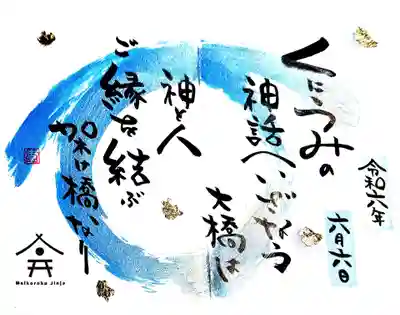 くにうみの
神話へいざなう
大橋は
神と人
ご縁を結ぶ
架け橋なり
令和六年
六月六日
Waikoroku Jinja